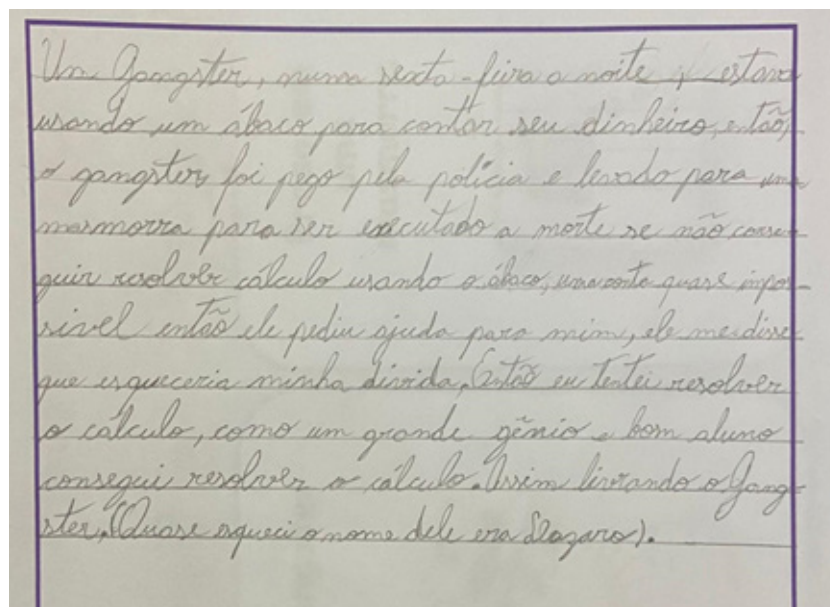 Um Gangster, numa sexta-feira a noite, estava
usando um ábaco para contar seu dinheiro, então,
o gangster foi pego pela polícia e levado para uma
marmorra para ser executado a morte se não conse-
guir resolver cálculo usando o ábaco, uma conta quase impos-
sivel então ele pediu ajuda para mim, ele me disse
que esqueceria minha divida. Então eu tentei resolver
o cálculo, como um grande gênio e bom aluno
consegui resolver o cálculo. Assim livrando o Gang-
ster, (Quase esqueci o nome dele era Slazaro).